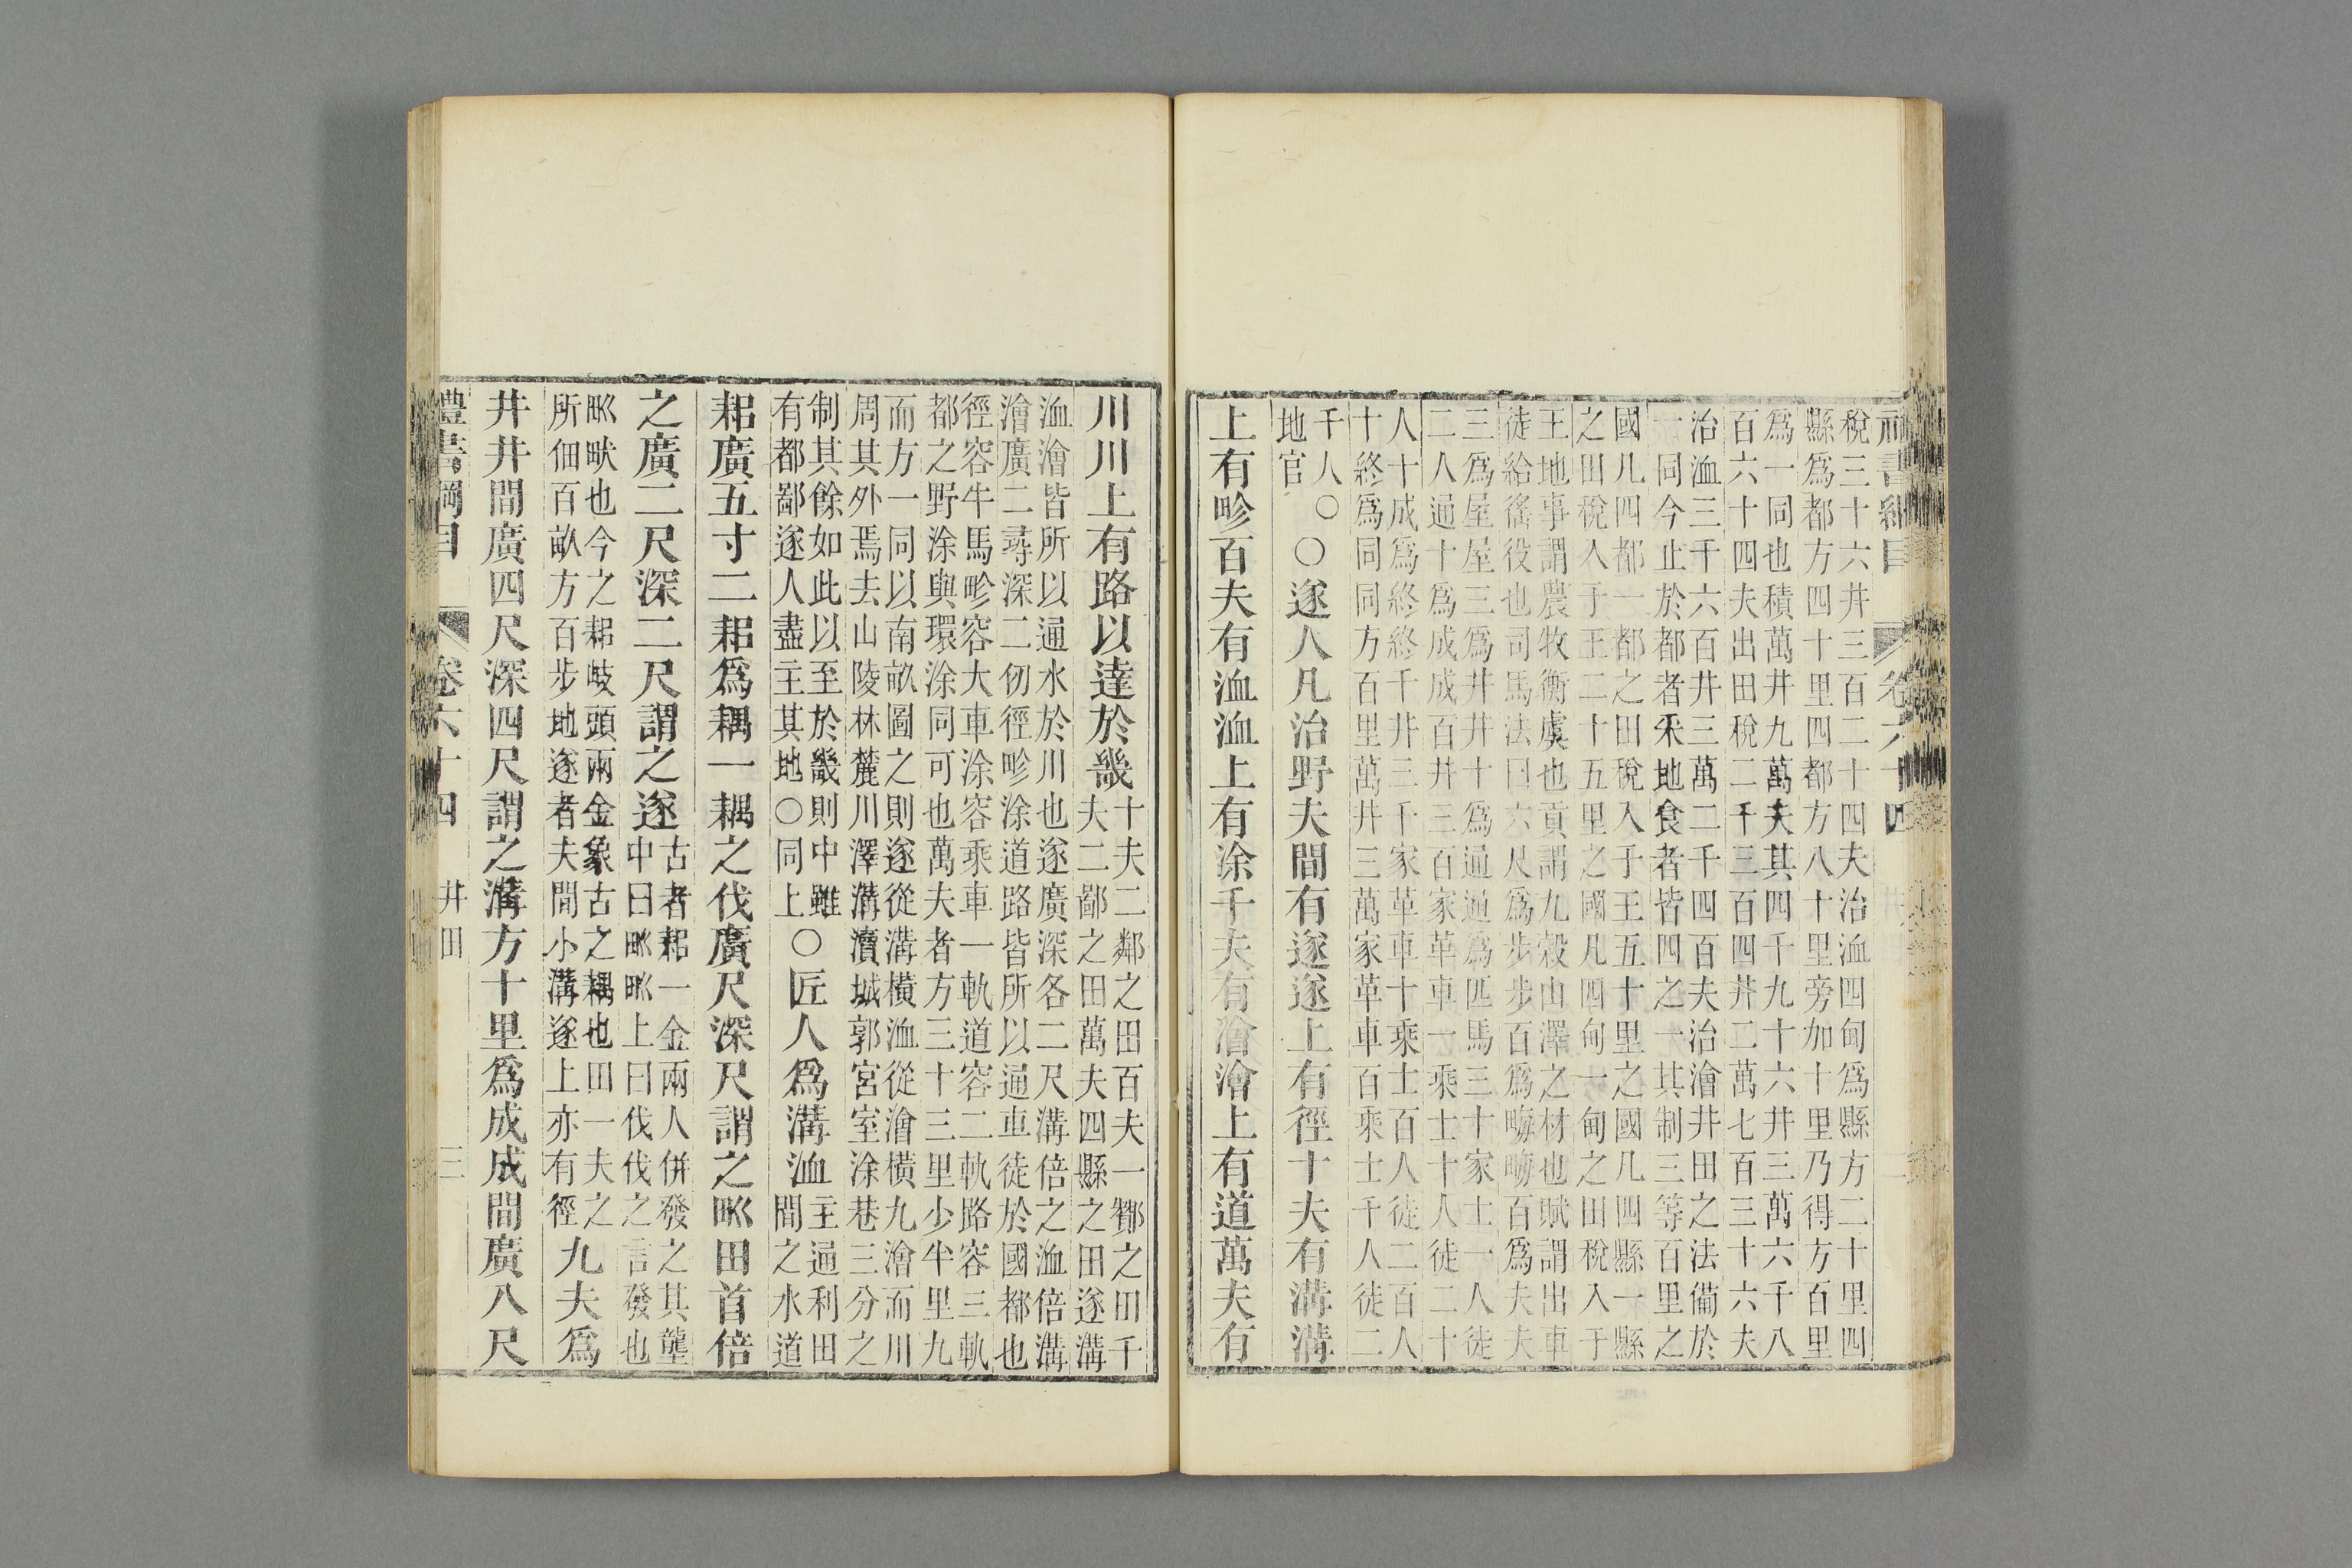 禮書綱目 卷六十四 井田 二
稅三十六井三百二十四夫治洫四甸爲縣方二十里四
縣爲都方四十里四都方八十里旁加十里乃得方百里
爲一同也積萬井九萬夫其四千九十六井三萬六千八
百六十四夫出田稅二千三百四井二萬七百三十六夫
治洫三千六百井三萬二千四百夫治澮井田之法備於
一同今止於都者采地食者皆四之一其制三等百里之
國凡四都一都之田稅入于王五十里之國凡四縣一縣
之田稅入于王二十五里之國凡四甸一甸之田稅入于
王地事謂農牧衡虞也貢謂九穀山澤之材也賦謂出車
徒給徭役也司馬法曰六尺爲步步百爲畮畮百爲夫夫
三爲屋屋三爲井井十爲通通爲匹馬三十家士一人徒
二人通十爲成成百井三百家革車一乘士十人徒二十
人十成爲終終千井三千家革車十乘士百人徒二百人
十終爲同同方百里萬井三萬家革車百乘士千人徒二
千人〇
地官
〇遂人凡治野夫間有遂遂上有徑十夫有溝溝
上有畛百夫有洫洫上有涂千夫有澮澮上有道萬夫有
川川上有路以達於畿
十夫二鄰之田百夫一酇之田千
夫二鄙之田萬夫四縣之田遂溝
洫澮皆所以通水於川也遂廣深各二尺溝倍之洫倍溝
澮廣二尋深二仞徑畛涂道路皆所以通車徒於國都也
徑容牛馬畛容大車涂容乘車一軌道容二軌路容三軌
都之野涂與環涂同可也萬夫者方三十三里少半里九
而方一同以南畝圖之則遂從溝橫洫從澮橫九澮而川
周其外焉去山陵林麓川澤溝瀆城郭宮室涂巷三分之
制其餘如此以至於畿則中雖
有都鄙遂人盡主其地〇同上
〇匠人爲溝洫
主通利田
間之水道
耜廣五寸二耜爲耦一耦之伐廣尺深尺謂之𤰕田首倍
之廣二尺深二尺謂之遂
古者耜一金兩人併發之其壟
中曰𤰕𤰕上曰伐伐之言發也
𤰕畎也今之耜岐頭兩金象古之耦也田一夫之
所佃百畝方百步地遂者夫間小溝遂上亦有徑
九夫爲
井井間廣四尺深四尺謂之溝方十里爲成成間廣八尺
禮書綱目 卷六十四 井田 三